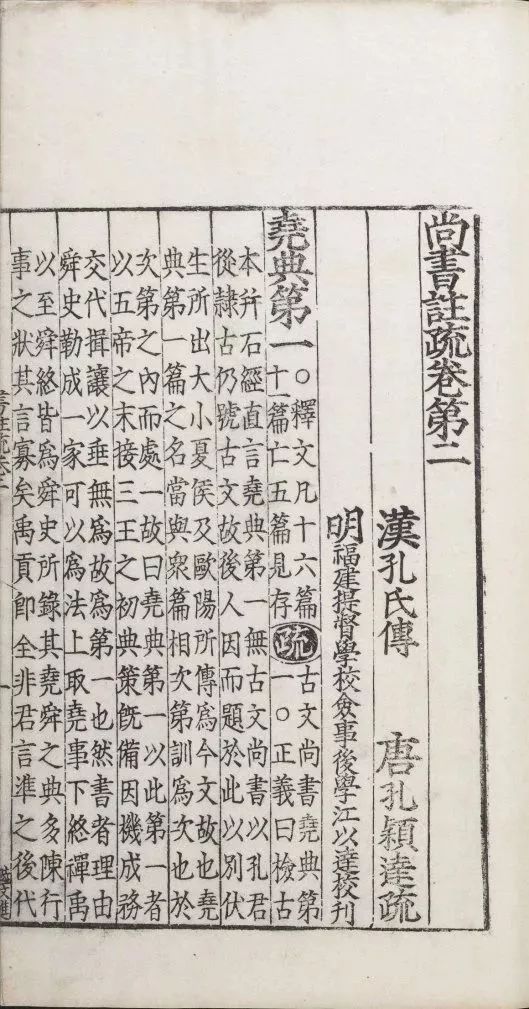 尚書註疏卷第二
漢孔氏傳　唐孔穎達疏
明福建提督學校僉事後學江以達校刊
堯典第一
○釋文凡十六篇
十一篇亡五篇見存
疏
古文尚書堯典第
一○正義曰檢古
本并石經直言堯典第一無古文尚書以孔君
從隸古仍號古文故後人因而題於此以別伏
生所出大小夏侯及歐陽所傳爲今文故也堯
典第一篇之名當與衆篇相次第訓爲次也於
次第之內而處一故曰堯典第一以此第一者
以五帝之末接三王之初典策旣備因機成務
交代揖讓以垂無爲故爲第一也然書者理由
舜史勒成一家可以爲法上取堯事下終禪禹
以至舜終皆爲舜史所錄其堯舜之典多陳行
事之狀其言寡矣禹貢卽全非君言準之後代
一